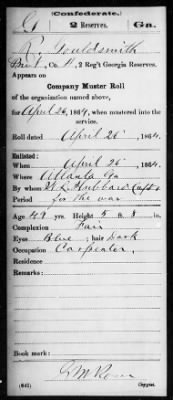 (Confederate.)
G 2 Reserves. Ga.
R. Gouldsmith
Priv't, Co. H, 2 Reg't Georgia Reserves.
Appears on
Company Muster Roll
of the organization named above,
for April 26, 1864, when mustered into the
service.
Roll dated April 26, 1864.
Enlisted:
When April 26, 1864.
Where Atlanta Ga
By whom Hubbard Capt
Period for the war
Age 49 yrs. Height 5 ft. 8 in.
Complexion Fair
Eyes Blue; hair Dark
Occupation Carpenter
Residence
Remarks:
Book mark:
(642) Copyist.